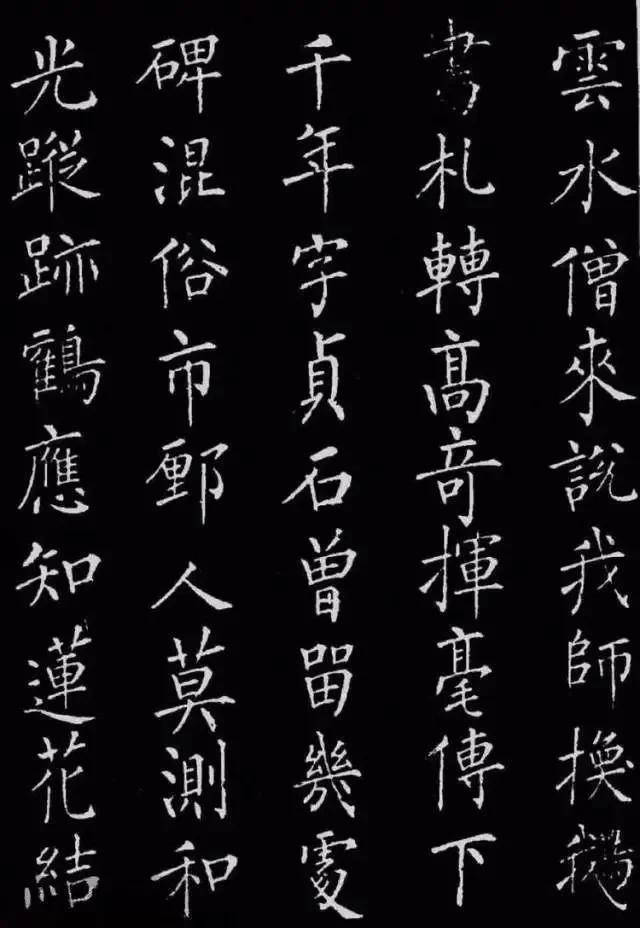 雲水僧來說我師換鵝
書札轉髙竒揮毫傳下
千年字貞石曾留幾處
碑混俗市鄽人莫測和
光蹤跡鶴應知蓮花結